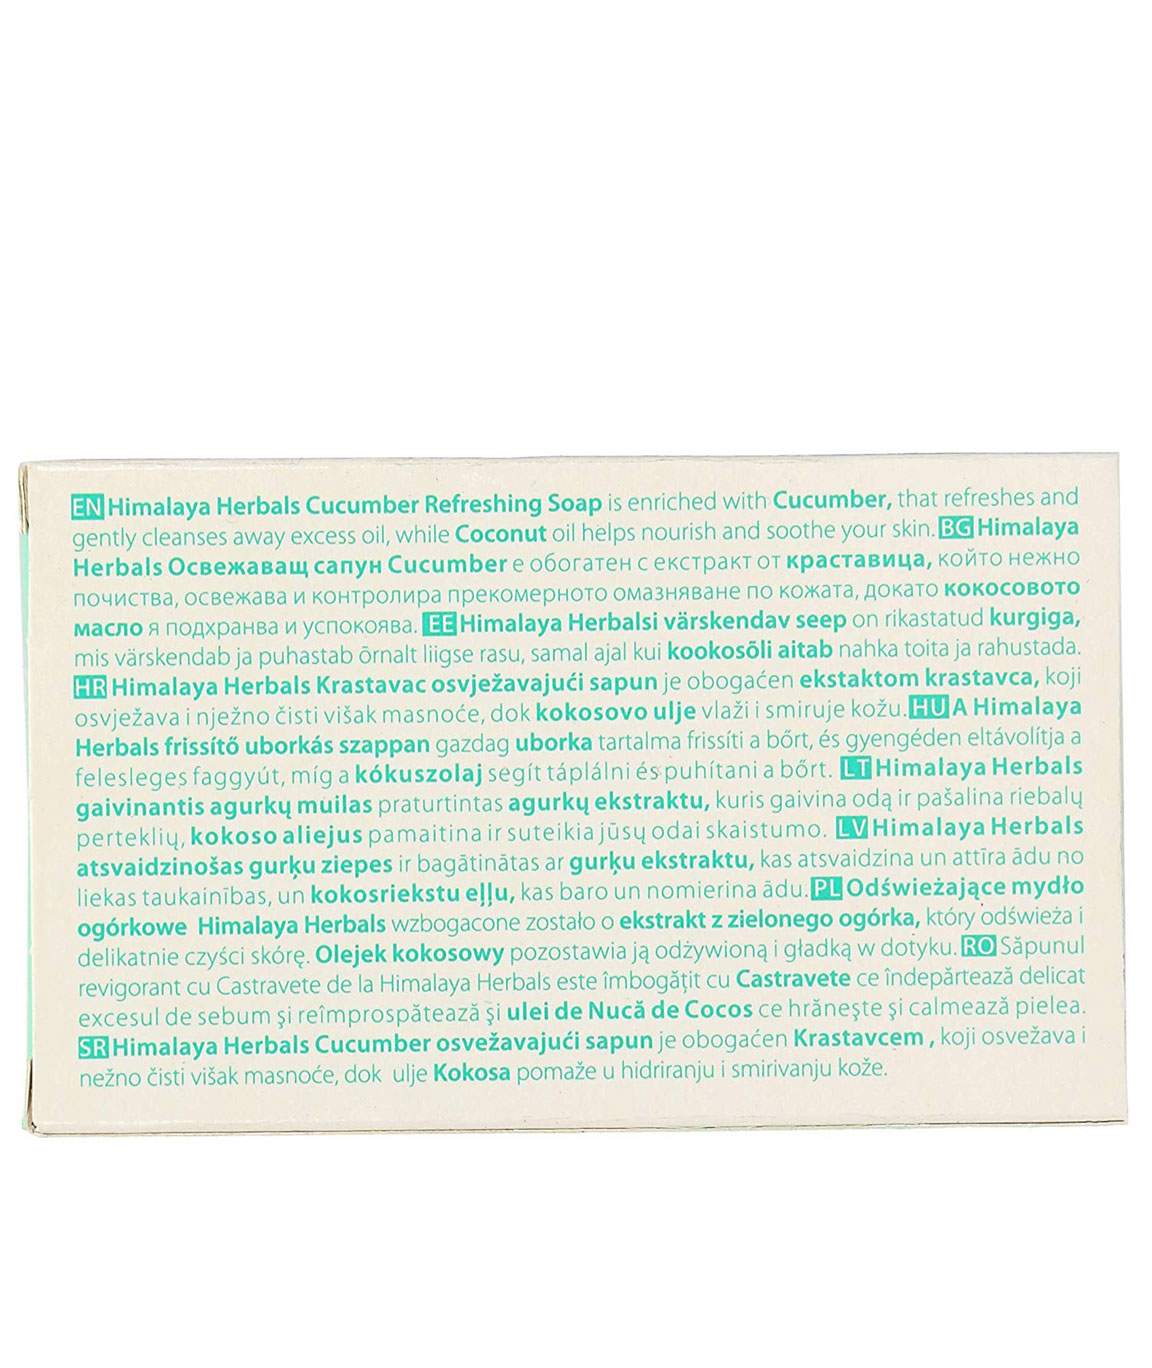 EN Himalaya Herbals Cucumber Refreshing Soap is enriched with Cucumber, that refreshes and
gently cleanses away excess oil, while Coconut oil helps nourish and soothe your skin. BG Himalaya
Herbals Освежаващ сапун Cucumber е обогатен с екстракт от краставица, който нежно
почиства, освежава и контролира прекомерното омазняване по кожата, докато кокосовото
масло я подхранва и успокоява. EE Himalaya Herbalsi värskendav seep on rikastatud kurgiga,
mis värskendab ja puhastab õrnalt liigse rasu, samal ajal kui kookosõli aitab nahka toita ja rahustada.
HR Himalaya Herbals Krastavac osvježavajući sapun je obogaćen ekstaktom krastavca, koji
osvježava i nježno čisti višak masnoće, dok kokosovo ulje vlaži i smiruje kožu. HU A Himalaya
Herbals frissítő uborkás szappan gazdag uborka tartalma frissíti a bőrt, és gyengéden eltávolítja a
felesleges faggyút, míg a kókuszolaj segít táplálni és puhítani a bőrt. LT Himalaya Herbals
gaivinantis agurkų muilas praturtintas agurkų ekstraktu, kuris gaivina odą ir pašalina riebalų
perteklių, kokoso aliejus pamaitina ir suteikia jūsų odai skaistumo. LV Himalaya Herbals
atsvaidzinošas gurķu ziepes ir bagātinātas ar gurķu ekstraktu, kas atsvaidzina un attīra ādu no
liekas taukainības, un kokosriekstu eļļu, kas baro un nomierina ādu. PL Odświeżające mydło
ogórkowe Himalaya Herbals wzbogacone zostało o ekstrakt z zielonego ogórka, który odświeża i
delikatnie czyści skórę. Olejek kokosowy pozostawia ją odżywioną i gładką w dotyku. RO Săpunul
revigorant cu Castravete de la Himalaya Herbals este îmbogățit cu Castravete ce îndepărtează delicat
excesul de sebum şi reîmprospătează şi ulei de Nucă de Cocos ce hrăneşte şi calmează pielea.
SR Himalaya Herbals Cucumber osvežavajući sapun je obogaćen Krastavcem , koji osvežava i
nežno čisti višak masnoće, dok ulje Kokosa pomaže u hidriranju i smirivanju kože.